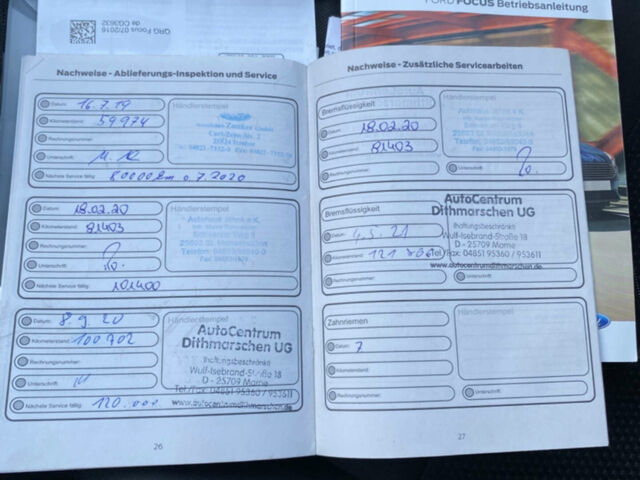 QRG Focus 07/2016
de CG3632
FORD FOCUS Betriebsanleitung
Nachweise - Ablieferungs-Inspektion und Service
Datum: 16.7.19
Kilometerstand: 59974
Rechnungsnummer:
Unterschrift:
Nächste Service fällig: 80000km o. 7.2020
Händlerstempel
Datum: 18.02.20
Kilometerstand: 81403
Rechnungsnummer:
Unterschrift:
Nächste Service fällig: 101400
Händlerstempel
Datum: 8.9.20
Kilometerstand: 100702
Rechnungsnummer:
Unterschrift:
Nächste Service fällig: 120.000
Händlerstempel
AutoCentrum
Dithmarschen UG
(haftungsbeschränkt)
Wulf-Isebrand-Straße 18
D - 25709 Marne
Tel./Fax: 04851 95360 / 953611
www.autocentrumdithmarschen.de
26
Nachweise - Zusätzliche Servicearbeiten
Bremsflüssigkeit
Datum: 18.02.20
Kilometerstand: 81403
Rechnungsnummer:
Händlerstempel
Unterschrift:
Bremsflüssigkeit
Datum: 4.5.21
Kilometerstand: 121
Rechnungsnummer:
AutoCentrum
Dithmarschen UG
(haftungsbeschränkt)
Wulf-Isebrand-Straße 18
D - 25709 Marne
Tel./Fax: 04851 95360 / 953611
www.autocentrumdithmarschen.de
Unterschrift:
Zahnriemen
Datum: 7
Kilometerstand:
Rechnungsnummer:
Händlerstempel
Unterschrift:
27